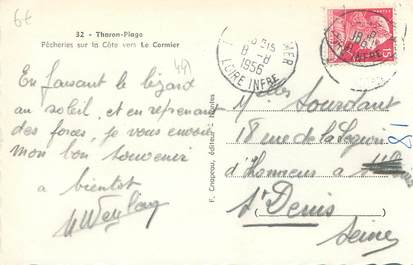 6f
32 - Tharon-Plage
Pêcheries sur la Côte vers Le Cormier
49
En faisant le lézard
au soleil, et en reprenant
des forces, je vous envoie
mon bon souvenir
à bientôt
F. Chapeau, éditeur - Nantes
MER
8 -8
1956
LOIRE INFRE
15
18 rue de la Légion
d'Honneur à
St Denis
Seine
81